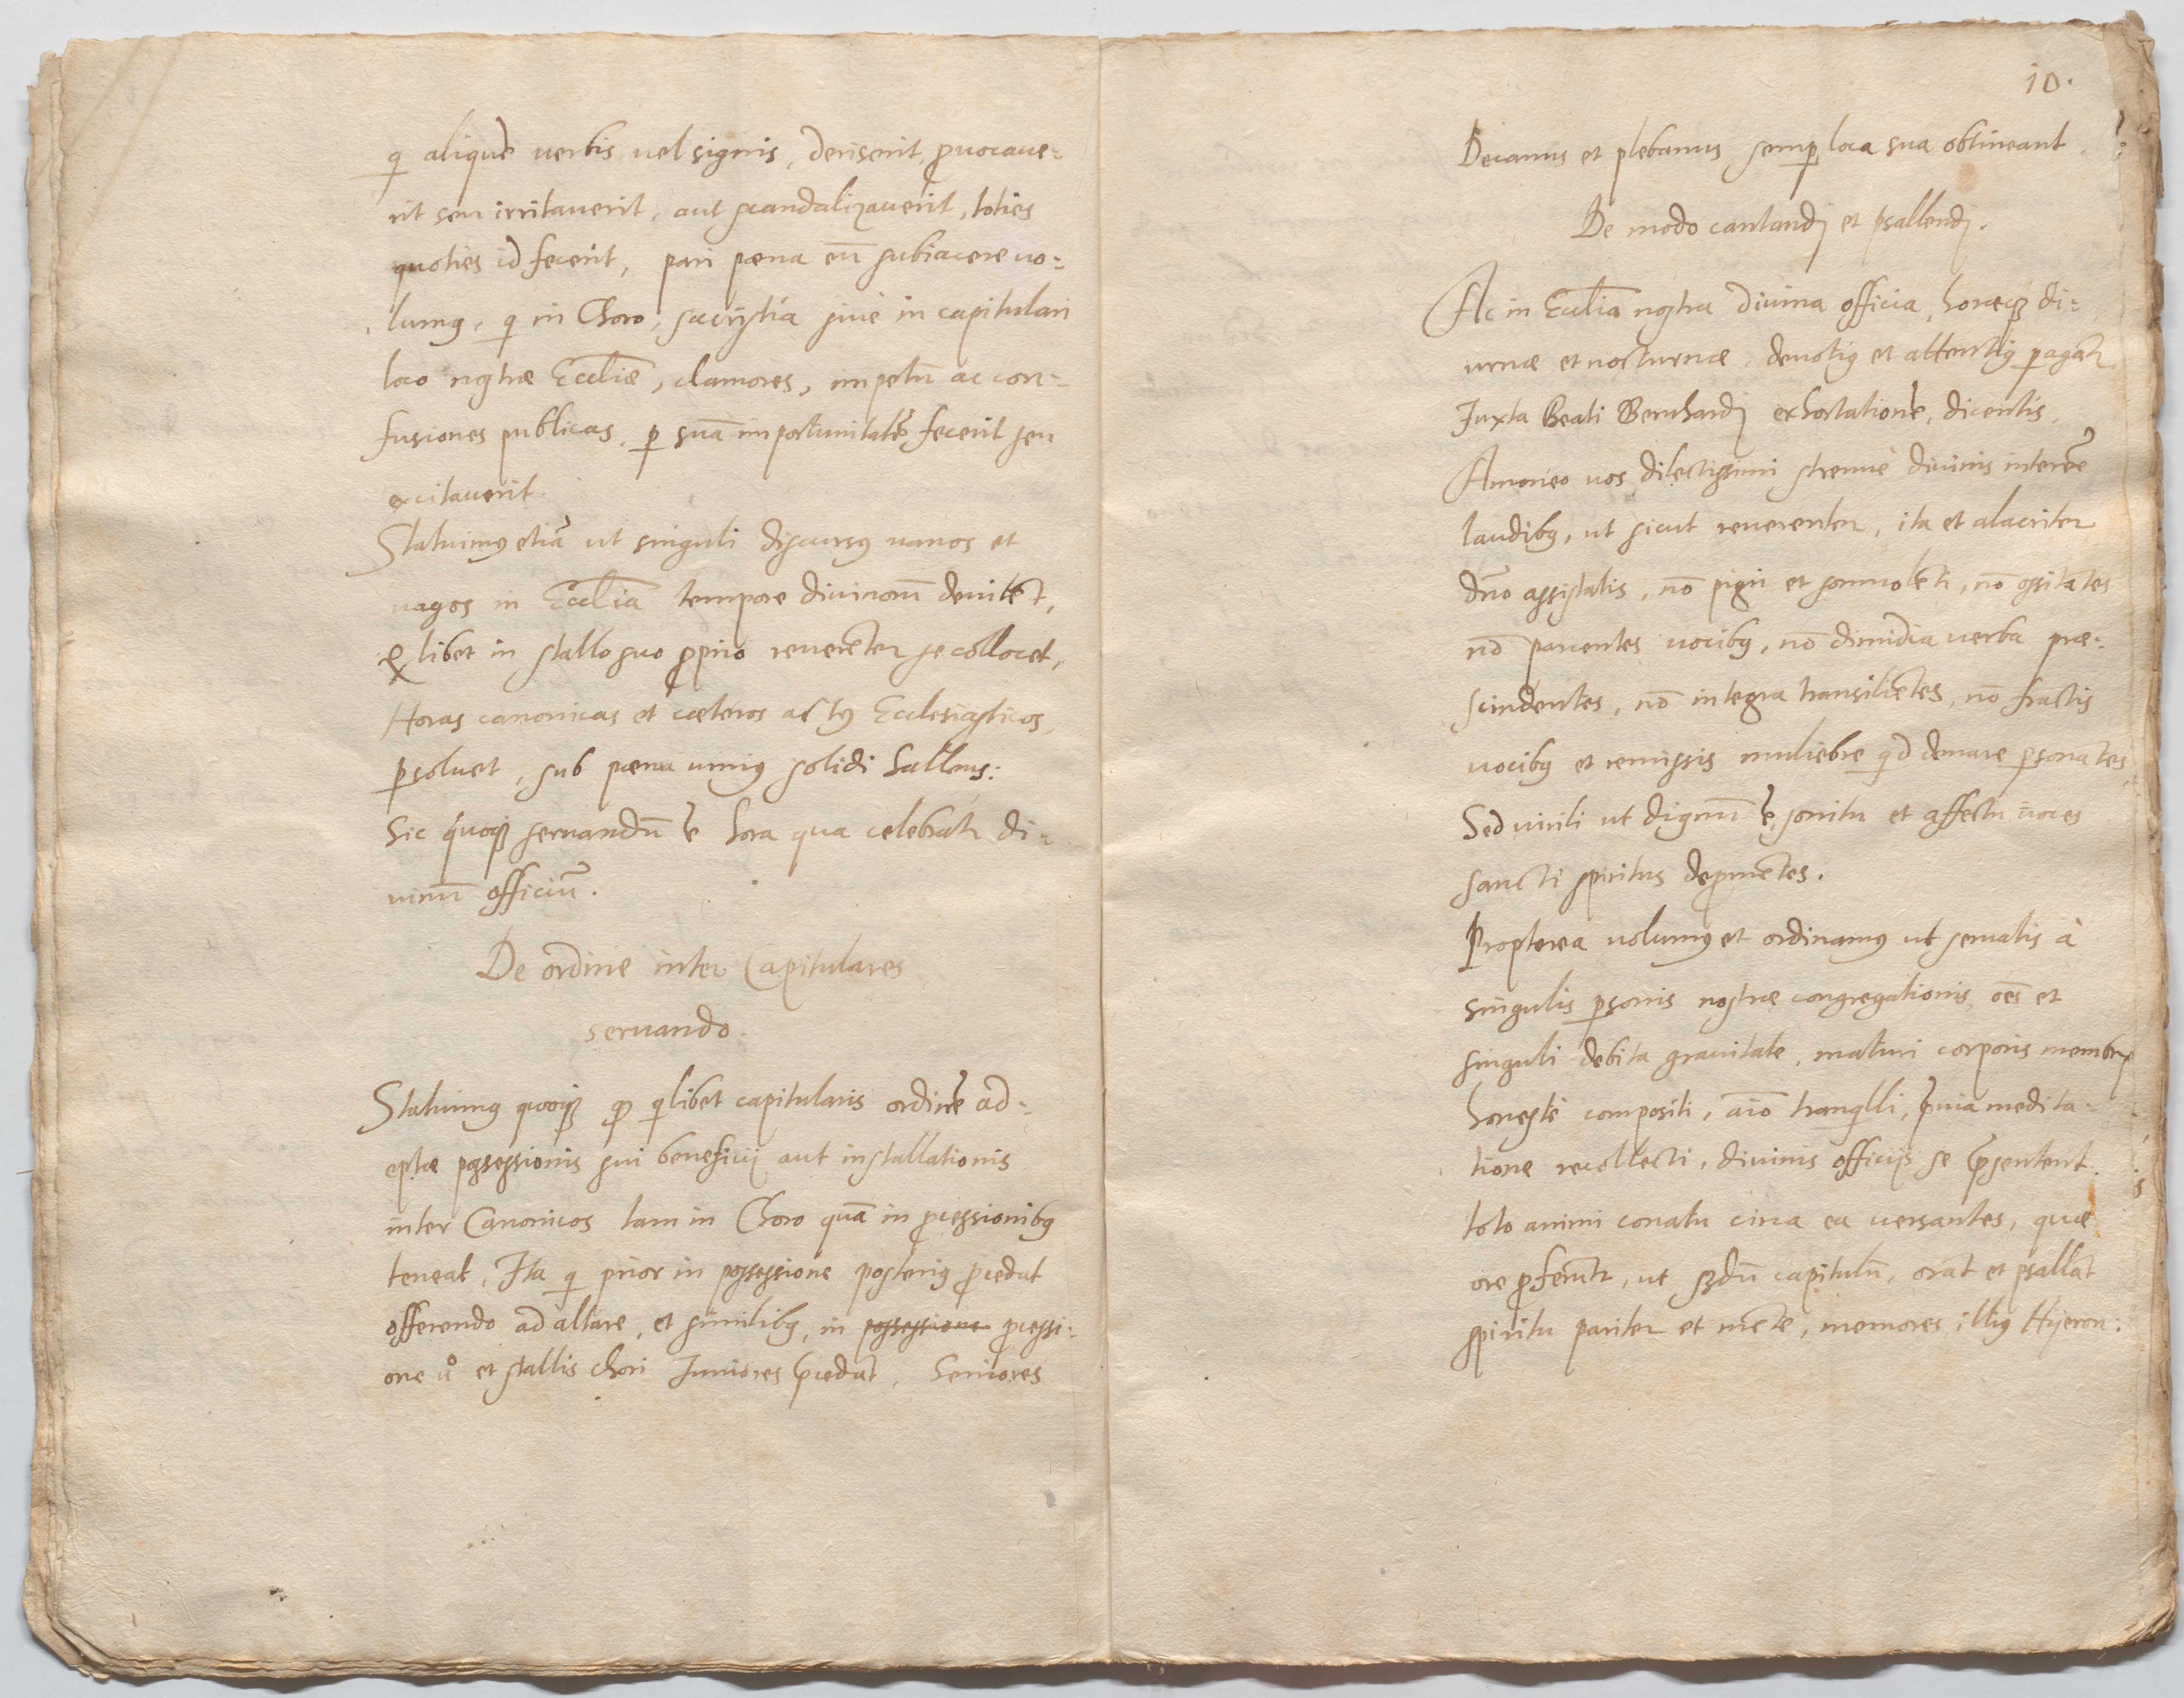 q aliquē verbis vel signis, deriserit, ꝓuocaue-
rit seu irritauerit, aut scandalizauerit, toties
quoties id fecerit, pari pœna eū subiacere uo-
lumꝰ, q in Choro, sacristia siuè in capitulari
loco nostræ Eccliæ, clamores, impetū ac con-
fusiones publicas, ꝑ suā importunitatē fecerit seu
excitauerit.
Statuimꝰ etiā ut singuli discursꝰ uanos et
uagos in Ecclia tempore diuinorū deuitēt,
Qlibet in stallo suo ꝓprio reuerēter se collocet,
Horas canonicas et cæteros actꝰ Ecclesiasticos,
ꝑsoluet, sub pœna uniꝰ solidi Hallens:
Sic quoqꝫ seruandū ē hora qua celebratr di-
uinū officiū.
De ordine inter Capitulares
seruando.
Statuimꝰ quoqꝫ ꝙ qlibet capitularis ordinē ad-
eptæ possessionis sui beneficij aut installationis
inter Canonicos tam in Choro quā in ꝓcessionibꝰ
teneat, Ita q prior in possessione posteriꝰ ꝓcedat
offerendo ad altare, et similibꝰ, in possessione ꝓcessi-
one uº et stallis chori Juniores p̄cedāt, Seniores
10.
Decanus et plebanus semꝑ loca sua obtineant.
De modo cantandj et psallendj.
Ac in Ecclia nostra diuina officia, horæqꝫ di-
urnæ et nocturnæ deuotiꝰ et attentiꝰ ꝑagātr
Juxta Beati Bernhardj exhortationē, dicentis,
Amoneo uos dilectissimi strenuè diuinis interēē
laudibꝰ, ut sicut reuerenter, ita et alacriter
dn̄o assistatis, nō pigri et somnolēti, nō ossitātes
nō parcentes uocibꝰ, nō dimidia uerba præ-
scindentes, nō integra transiliētes, nō fractis
uocibꝰ et remissis muliebre qd denare ꝑsonātes,
Sed uirili ut dignū ē, sonitu et affectu uoces
sancti spiritus deꝓmētes.
Propterea uolumꝰ et ordinamꝰ ut seruatis à
singulis ꝑsonis nostræ congregationis oēs et
singuli debita grauitate, maturi corporis membris
honestè compositi, aīo tranqlli, p̄uia medita-
tione recollecti, diuinis officijs se p̄sentent
toto animi conatu circa ea uersantes, quæ
ore ꝓferūtr, ut sꝫdū capitulū, orāt et psallāt
spiritu pariter et mēte, memores illiꝰ Hyeron: